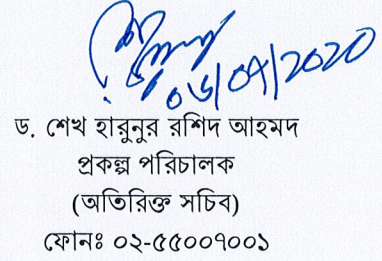 ০৬/০৭/২০২০
ড. শেখ হারুনুর রশিদ আহমদ
প্রকল্প পরিচালক
(অতিরিক্ত সচিব)
ফোনঃ ০২-৫৫০০৭০০১